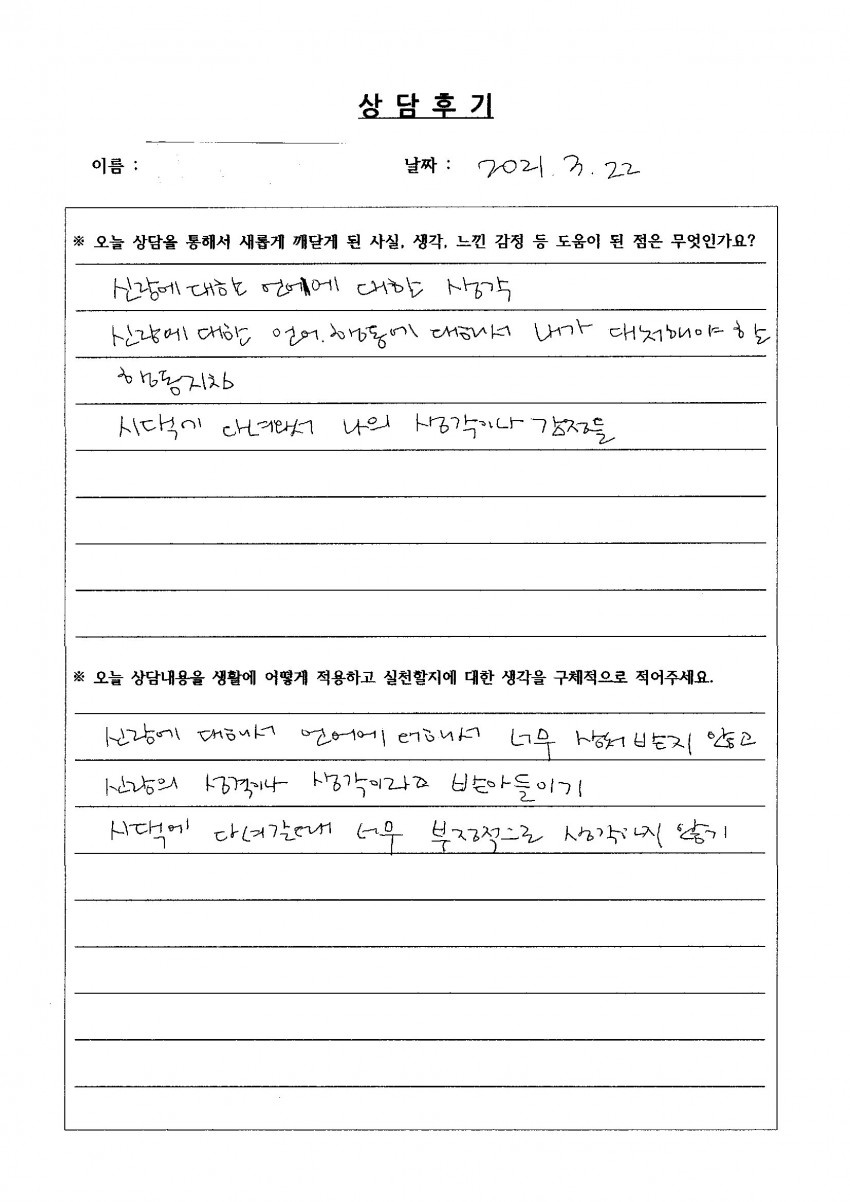 상 담 후 기
이름 :
날짜 : 2021. 3. 22
※ 오늘 상담을 통해서 새롭게 깨닫게 된 사실, 생각, 느낀 감정 등 도움이 된 점은 무엇인가요?
신랑에 대한 언어에 대한 생각
신랑에 대한 언어.행동에 대해서 내가 대처해야 할
행동지침
시댁에 다녀와서 나의 생각이나 감정들
※ 오늘 상담내용을 생활에 어떻게 적용하고 실천할지에 대한 생각을 구체적으로 적어주세요.
신랑에 대해서 언어에 대해서 너무 상처 받지 않고
신랑의 성격이나 생각이라고 받아들이기
시댁에 다녀갈때 너무 부정적으로 생각하지 않기